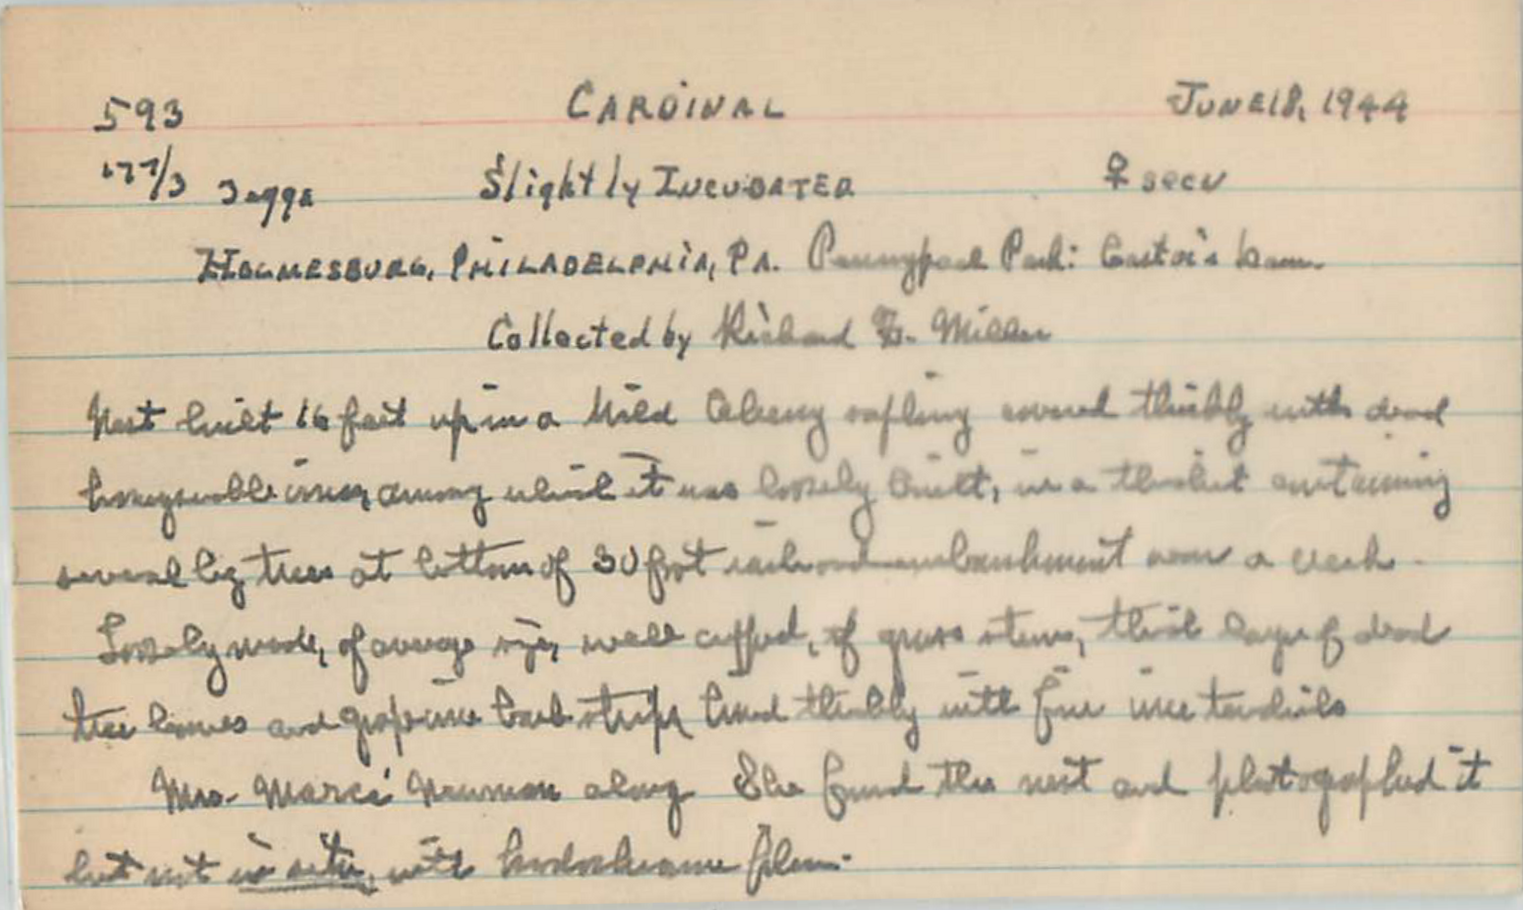 593 CARDINAL JUNE 18, 1944
177/3 3 eggs Slightly INCUBATED ♀ seen
HOLMESBURG, PHILADELPHIA, PA. Pennypack Park: Castor's
Collected by Richard F. Miller
Nest built 16 feet up in a Wild Cherry sapling covered thickly with dead
honeysuckle vines, among which it was loosely built, in a thicket containing
several big trees at bottom of 30 foot railroad embankment near a creek.
Loosely made, of average size, well cupped, of grass stems, thick layer of dead
tree leaves and grapevine bark strips lined thickly with fine vine tendrils
Mrs. Newman along She found this nest and photographed it
but not in situ, with kodachrome film.